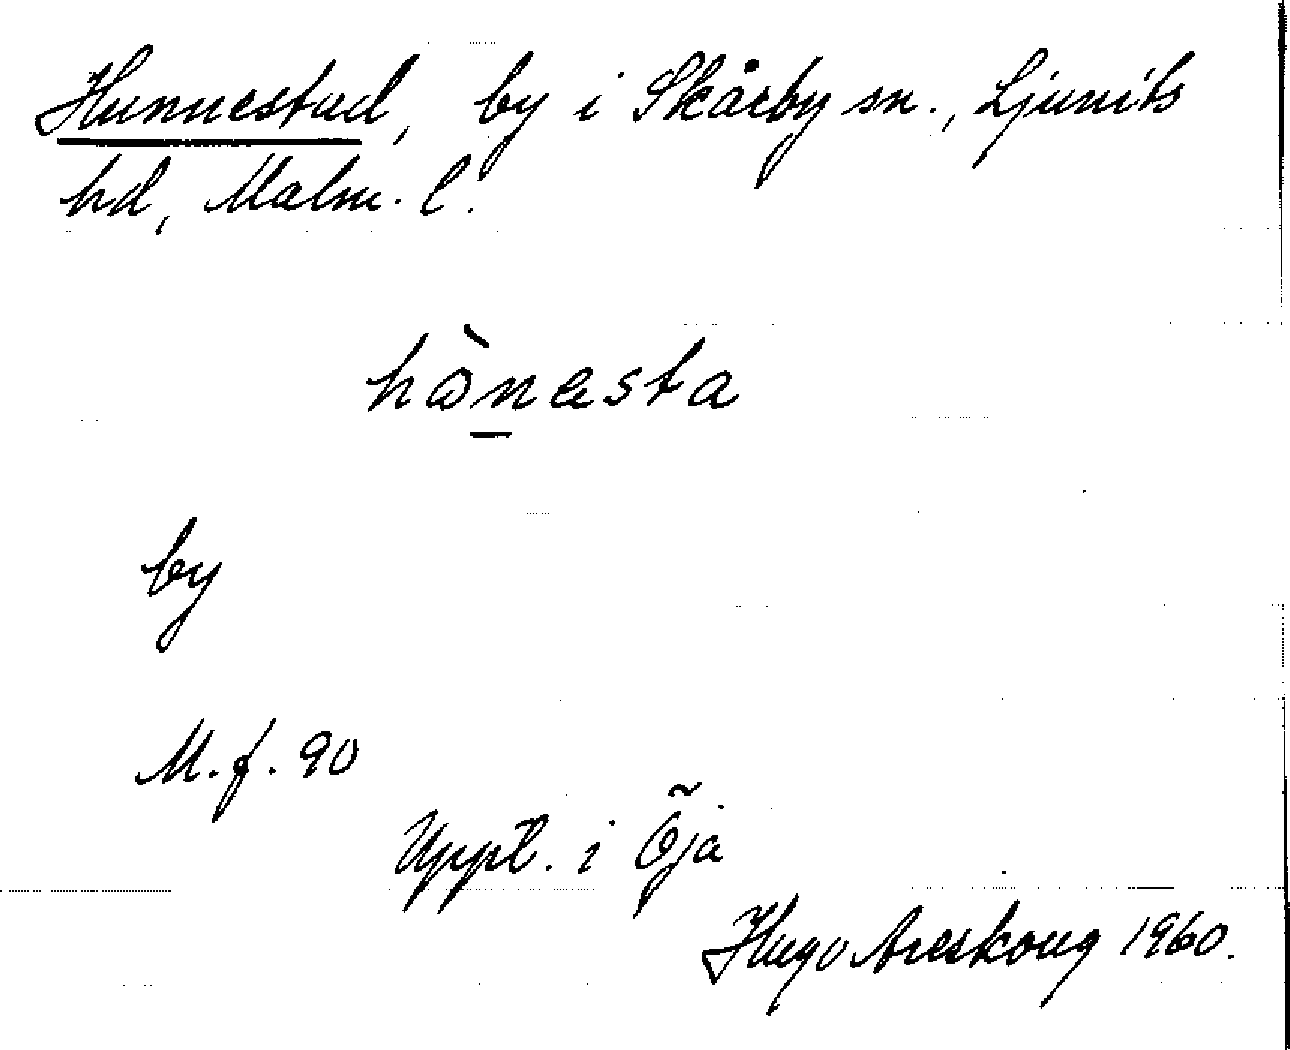 Hunnestad, by i Skårby sn., Ljunits
hd, Malm. l.
hònasta
by
M.f. 90
Uppt. i Öja
Hugo Areskoug 1960.